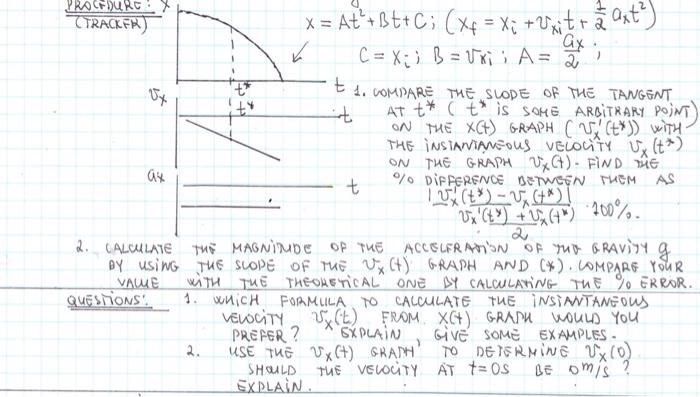 PROCEDURE: X
(TRACKER)
X = At²+Bt+C; (Xf = Xi + Vxit + 1/2 axt²)
C = Xi; B = Vxi; A = ax/2;
t* t
Vx t* t
ax t
1. COMPARE THE SLOPE OF THE TANGENT
AT t* (t* IS SOME ARBITRARY POINT)
ON THE X(t) GRAPH (Vx'(t*)) WITH
THE INSTANTANEOUS VELOCITY Vx(t*)
ON THE GRAPH Vx(t). FIND THE
% DIFFERENCE BETWEEN THEM AS
|Vx'(t*) - Vx(t*)|
Vx'(t*) + Vx(t*) · 100%.
2
2. CALCULATE THE MAGNITUDE OF THE ACCELERATION OF THE GRAVITY g
BY USING THE SLOPE OF THE Vx(t) GRAPH AND (*). COMPARE YOUR
VALUE WITH THE THEORETICAL ONE BY CALCULATING THE % ERROR.
QUESTIONS: 1. WHICH FORMULA TO CALCULATE THE INSTANTANEOUS
VELOCITY Vx(t) FROM X(t) GRAPH WOULD YOU
PREFER? EXPLAIN, GIVE SOME EXAMPLES.
2. USE THE Vx(t) GRAPH TO DETERMINE Vx(0)
SHOULD THE VELOCITY AT t=0s BE 0 m/s?
EXPLAIN.